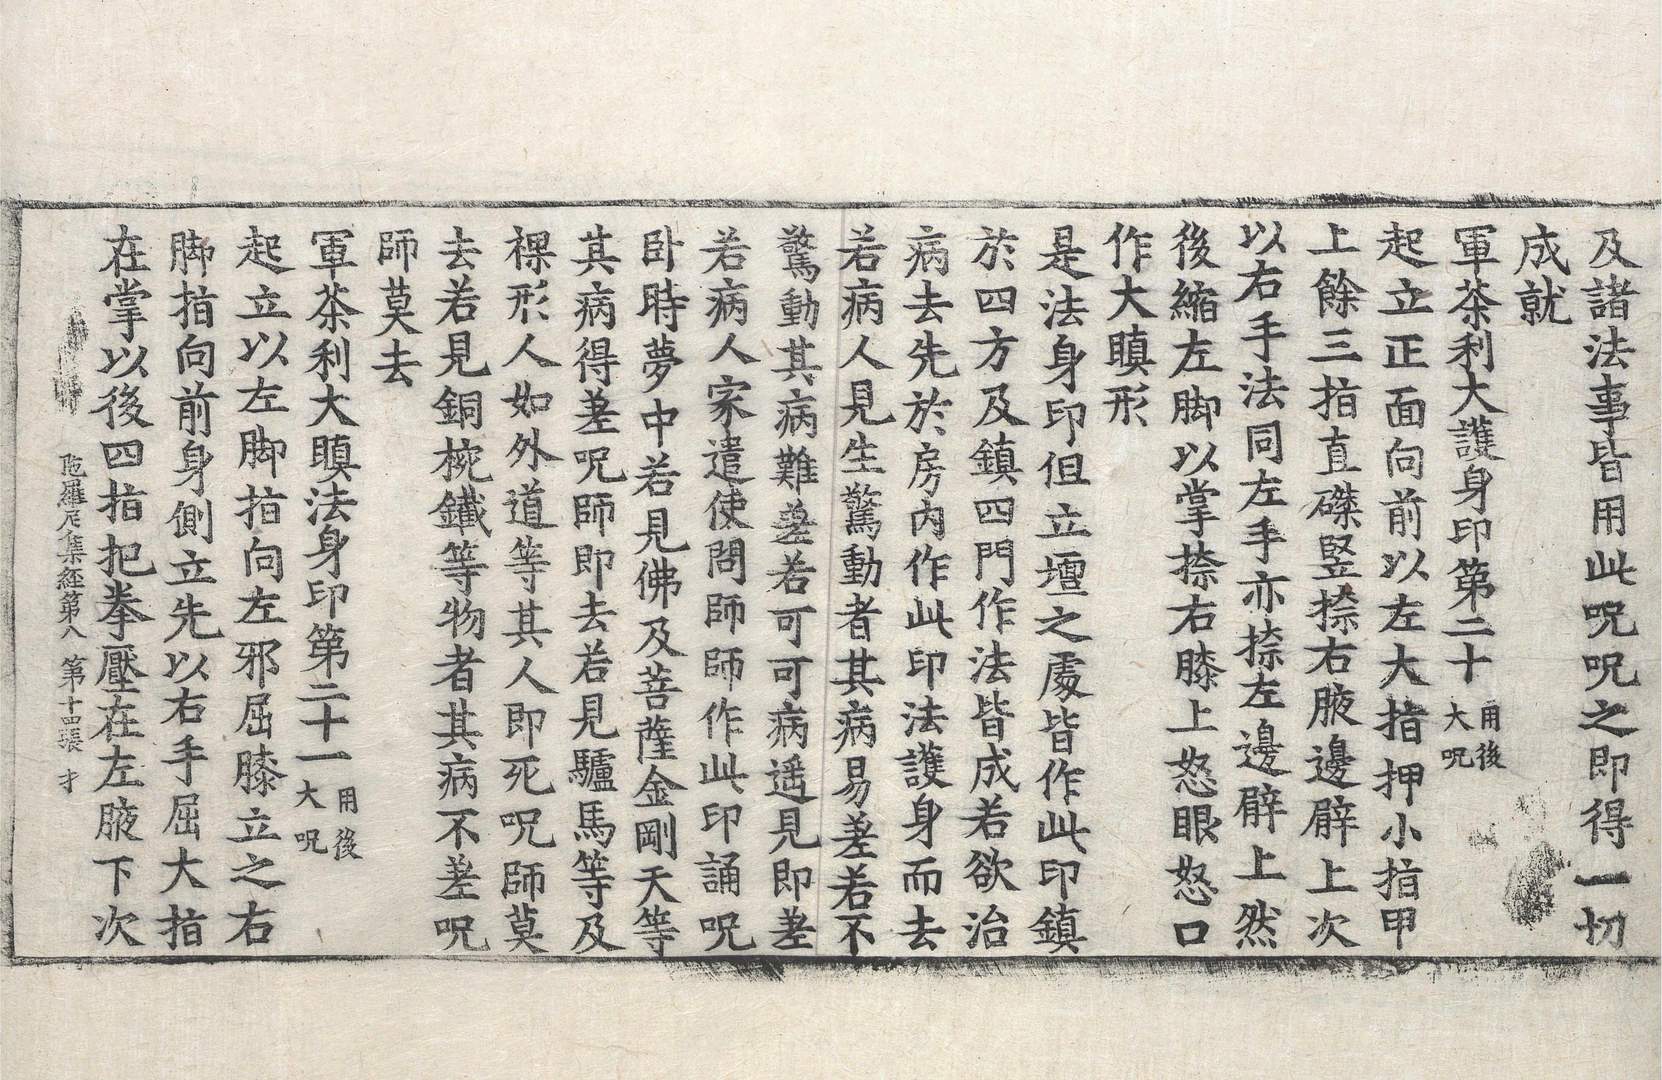 及諸法事皆用此呪呪之即得一切
成就
軍茶利大護身印第二十用後大呪
起立正面向前以左大指押小指甲
上餘三指直磔竪捺右腋邊臂上次
以右手法同左手亦捺左邊臂上然
後縮左脚以掌捺右膝上怒眼怒口
作大瞋形
是法身印但立壇之處皆作此印鎮
於四方及鎮四門作法皆成若欲治
病去先於房內作此印法護身而去
若病人見生驚動者其病易差若不
驚動其病難差若可可病遥見即差
若病人家遣使問師師作此印誦呪
卧時夢中若見佛及菩薩金剛天等
其病得差呪師即去若見驢馬等及
裸形人如外道等其人即死呪師莫
去若見銅椀鐵等物者其病不差呪
師莫去
軍茶利大瞋法身印第二十一用後大呪
起立以左脚指向左邪屈膝立之右
脚指向前身側立先以右手屈大指
在掌以後四指把拳壓在左腋下次
陁羅尼集經第八 第十四張 才